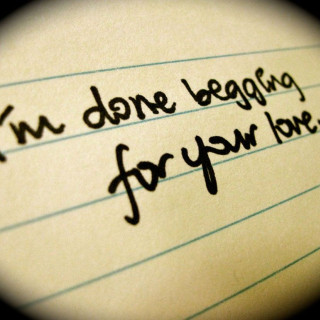 I'm done begging
for your love.